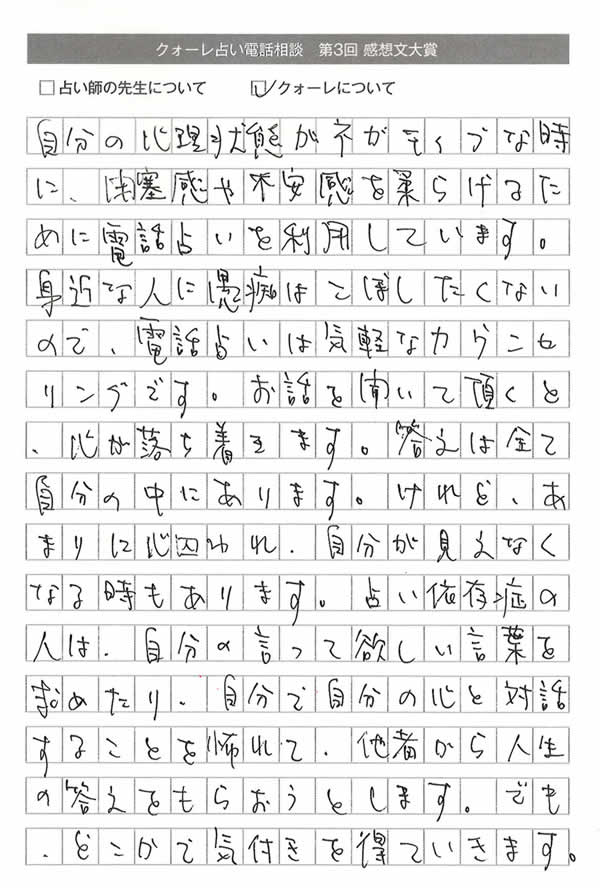 クォーレ占い電話相談　第3回 感想文大賞
□占い師の先生について　☑クォーレについて
自分の心理状態がネガティブな時
に、閉塞感や不安感を柔らげるた
めに電話占いを利用しています。
身近な人に愚痴はこぼしたくない
ので、電話占いは気軽なカウンセ
リングです。お話を聞いて頂くと
、心が落ち着きます。答えは全て
自分の中にあります。けれど、あ
まりに心囚われ、自分が見えなく
なる時もあります。占い依存症の
人は、自分の言って欲しい言葉を
求めたり、自分で自分の心と対話
することを怖れて、他者から人生
の答えをもらおうとします。でも
、どこかで気付きを得ていきます。